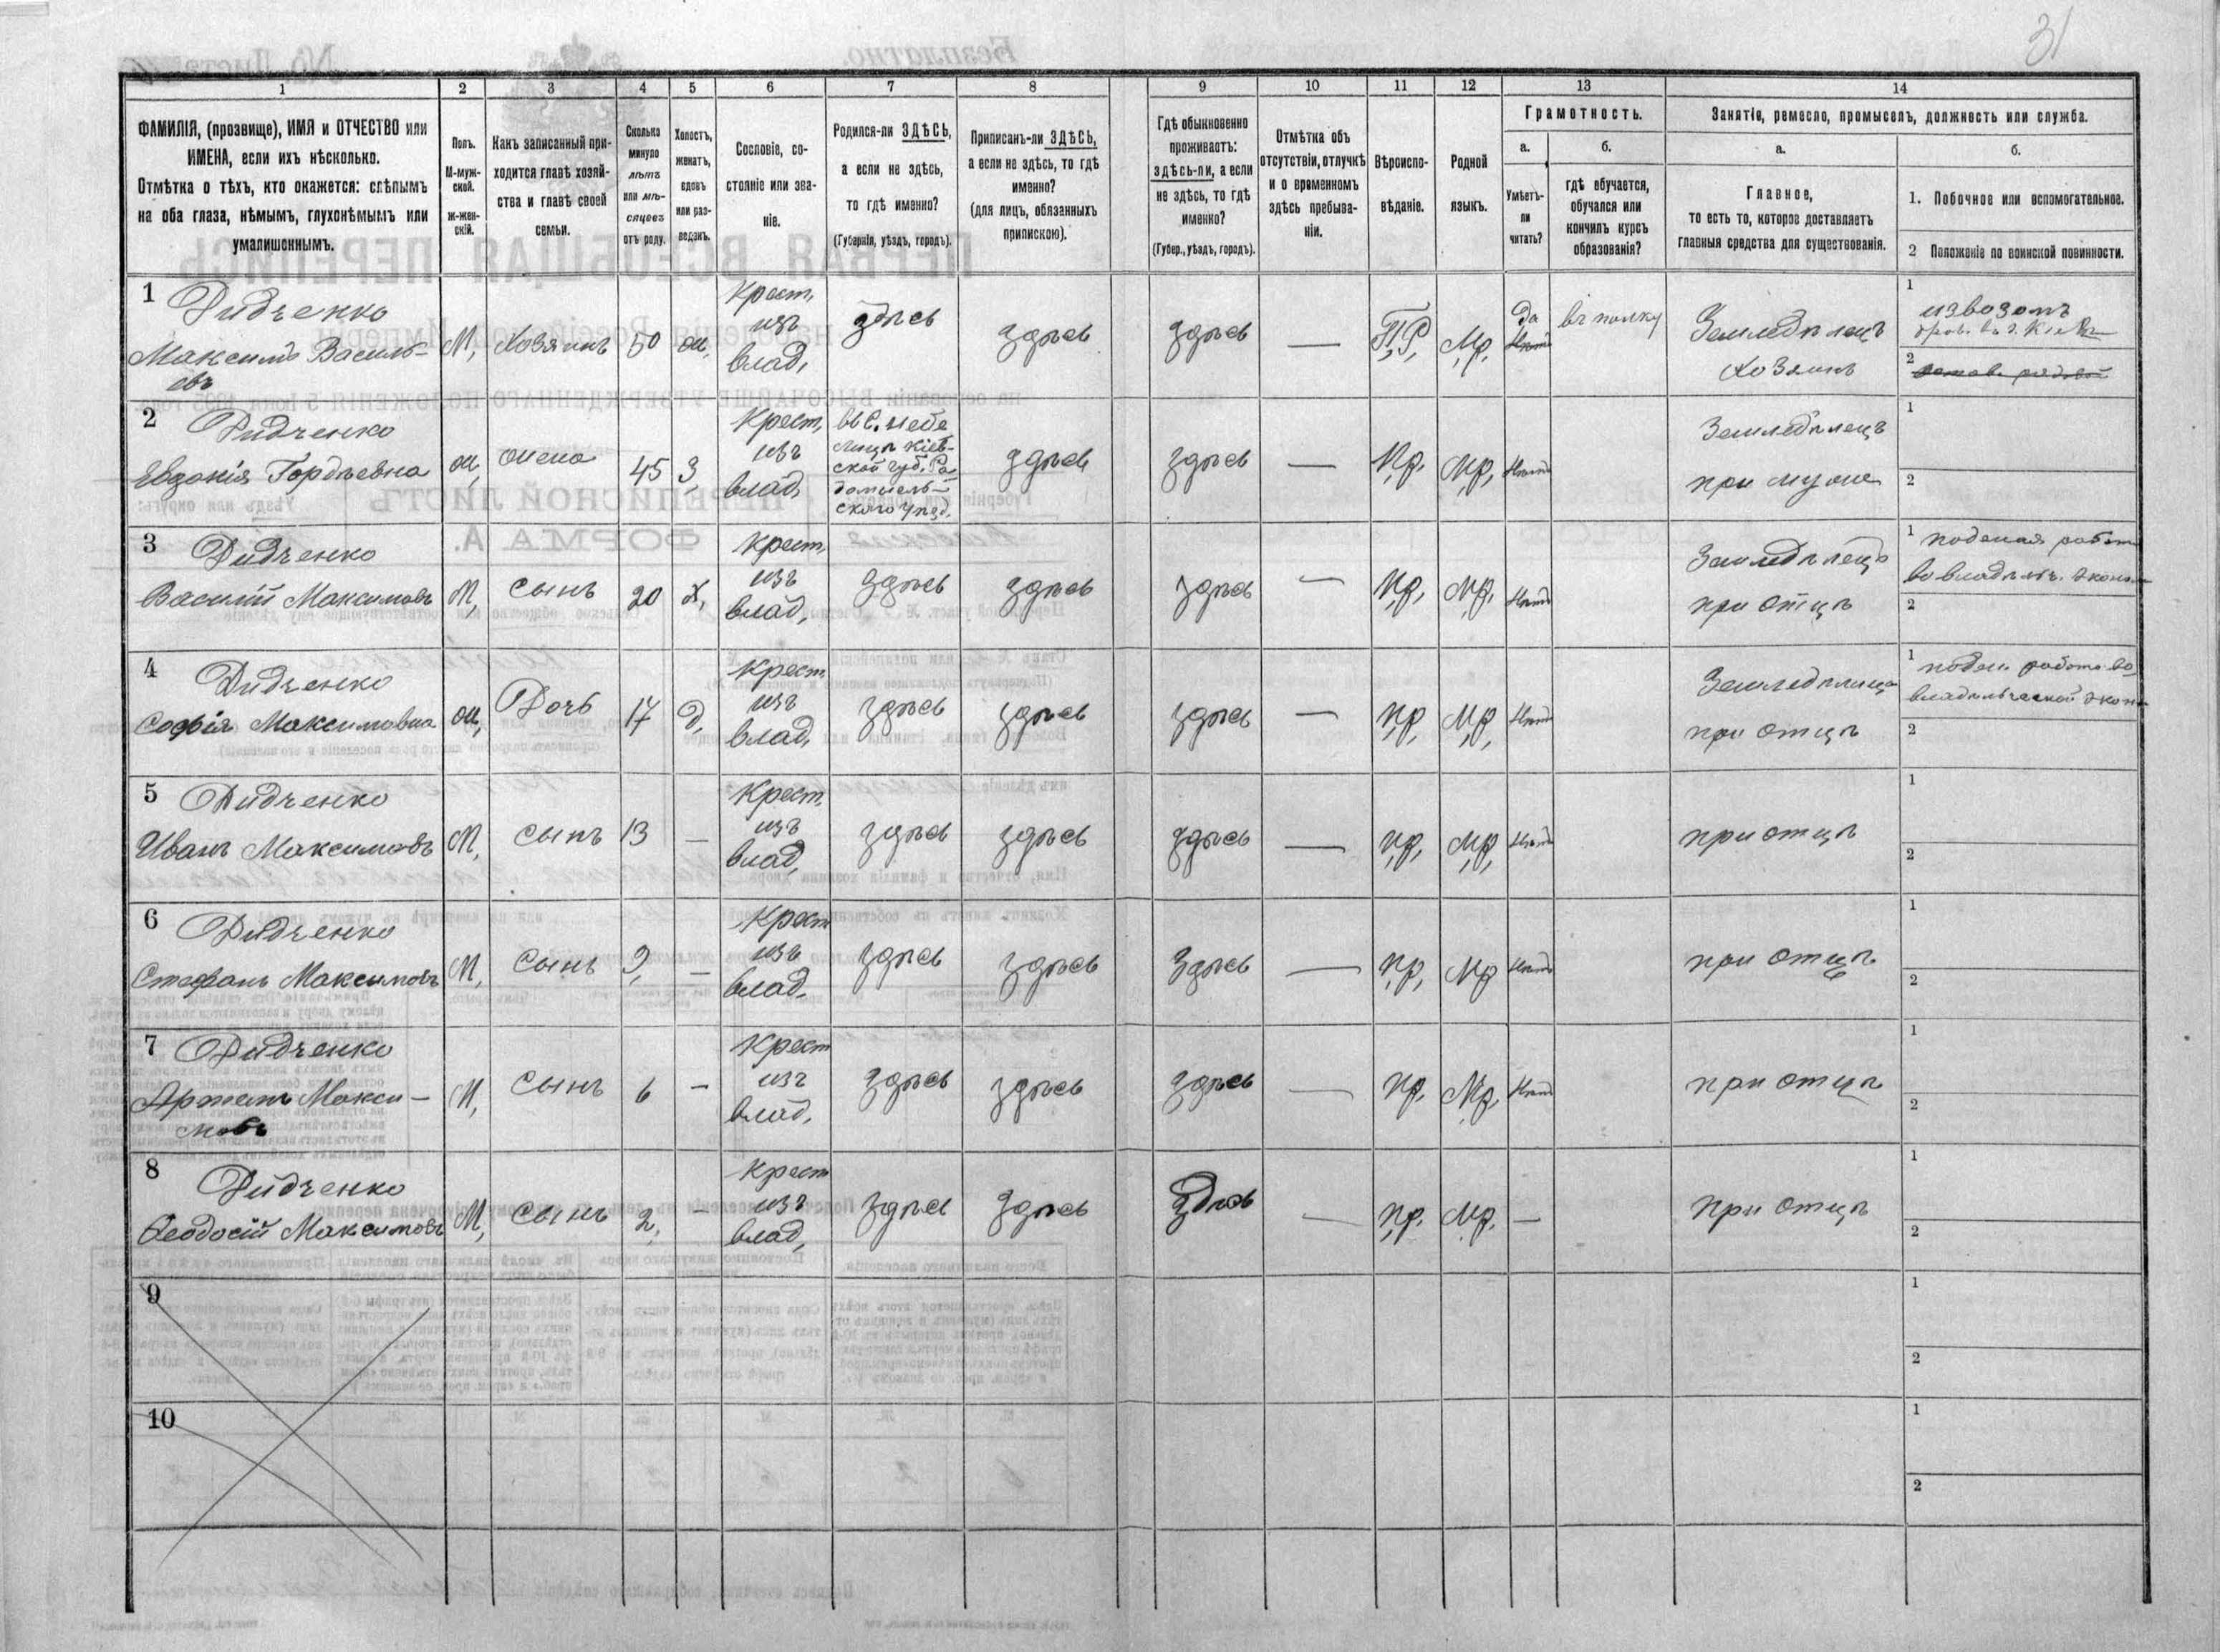 31
1
2
3
4
5
6
7
8
9
10
11
12
13
14
ФАМИЛІЯ, (прозвище), ИМЯ и ОТЧЕСТВО или
ИМЕНА, если ихъ нѣсколько.
Отмѣтка о тѣхъ, кто окажется: слѣпымъ
на оба глаза, нѣмымъ, глухонѣмымъ или
умалишеннымъ.
Полъ.
М-муж-
ской.
ж-жен-
скій.
Какъ записанный при-
ходится главѣ хозяй-
ства и главѣ своей
семьи.
Сколько
минуло
лѣтъ
или мѣ-
сяцевъ
отъ роду.
Холостъ,
женатъ,
вдовъ
или раз-
веденъ.
Сословіе, со-
стояніе или зва-
ніе.
Родился-ли ЗДѢСЬ,
а если не здѣсь,
то гдѣ именно?
(Губернія, уѣздъ, городъ).
Приписанъ-ли ЗДѢСЬ,
а если не здѣсь, то гдѣ
именно?
(для лицъ, обязанныхъ
припискою).
Гдѣ обыкновенно
проживаетъ:
здѣсь-ли, а если
не здѣсь, то гдѣ
именно?
(Губер., уѣздъ, городъ).
Отмѣтка объ
отсутствіи, отлучкѣ
и о временномъ
здѣсь пребыва-
ніи.
Вѣроиспо-
вѣданіе.
Родной
языкъ.
Грамотность.
а.
Умѣетъ-
ли
читать?
б.
гдѣ обучается,
обучался или
кончилъ курсъ
образованія?
Занятіе, ремесло, промыселъ, должность или служба.
а.
Главное,
то есть то, которое доставляетъ
главныя средства для существованія.
б.
1. Побочное или вспомогательное.
2 Положеніе по воинской повинности.
1 Дидченко
Максимъ Василь-
евъ
М, Хозяинъ 50 ж,
Крест, изъ влад,
здѣсь здѣсь здѣсь — П,Р, М,р,
да Нѣтъ въ полку
Земледѣлецъ
хозяинъ
1 извозомъ
2
2 Дидченко
Евдокія Гордѣевна
ж, жена 45 З,
Крест, изъ влад,
въ С. Небе
лицѣ Кіев-
ской губ. Ра
домысль-
ского уѣзд.
здѣсь здѣсь — Пр. М,р, Нѣтъ
Земледѣлецъ
при муже
1
2
3 Дидченко
Василій Максимовъ
М, сынъ 20 х,
Крест, изъ влад,
здѣсь здѣсь здѣсь — Пр, М,р, Нѣтъ
Земледѣлецъ
при отцѣ
1
2
4 Дидченко
Софія Максимовна
ж, Дочь 17 д,
Крест, изъ влад,
здѣсь здѣсь здѣсь — пр, М,р, Нѣтъ
при отцѣ
1
2
5 Дидченко
Иванъ Максимовъ
М, сынъ 13 —
Крест, изъ влад,
здѣсь здѣсь здѣсь — пр, М,р, Нѣтъ
при отцѣ
1
2
6 Дидченко
Стефанъ Максимовъ
М, сынъ 9, —
Крест изъ влад.
здѣсь здѣсь здѣсь — пр, Мр Нѣтъ
при отцѣ
1
2
7 Дидченко
Артемъ Макси-
мовъ
М, сынъ 6 —
Крест изъ влад,
здѣсь здѣсь здѣсь — пр. М,р. Нѣтъ
при отцѣ
1
2
8 Дидченко
Ѳеодосій Максимовъ
М, сынъ 2, —
Крест изъ влад,
здѣсь здѣсь здѣсь — пр. М.р. —
при отцѣ
1
2
9
1
2
10
1
2